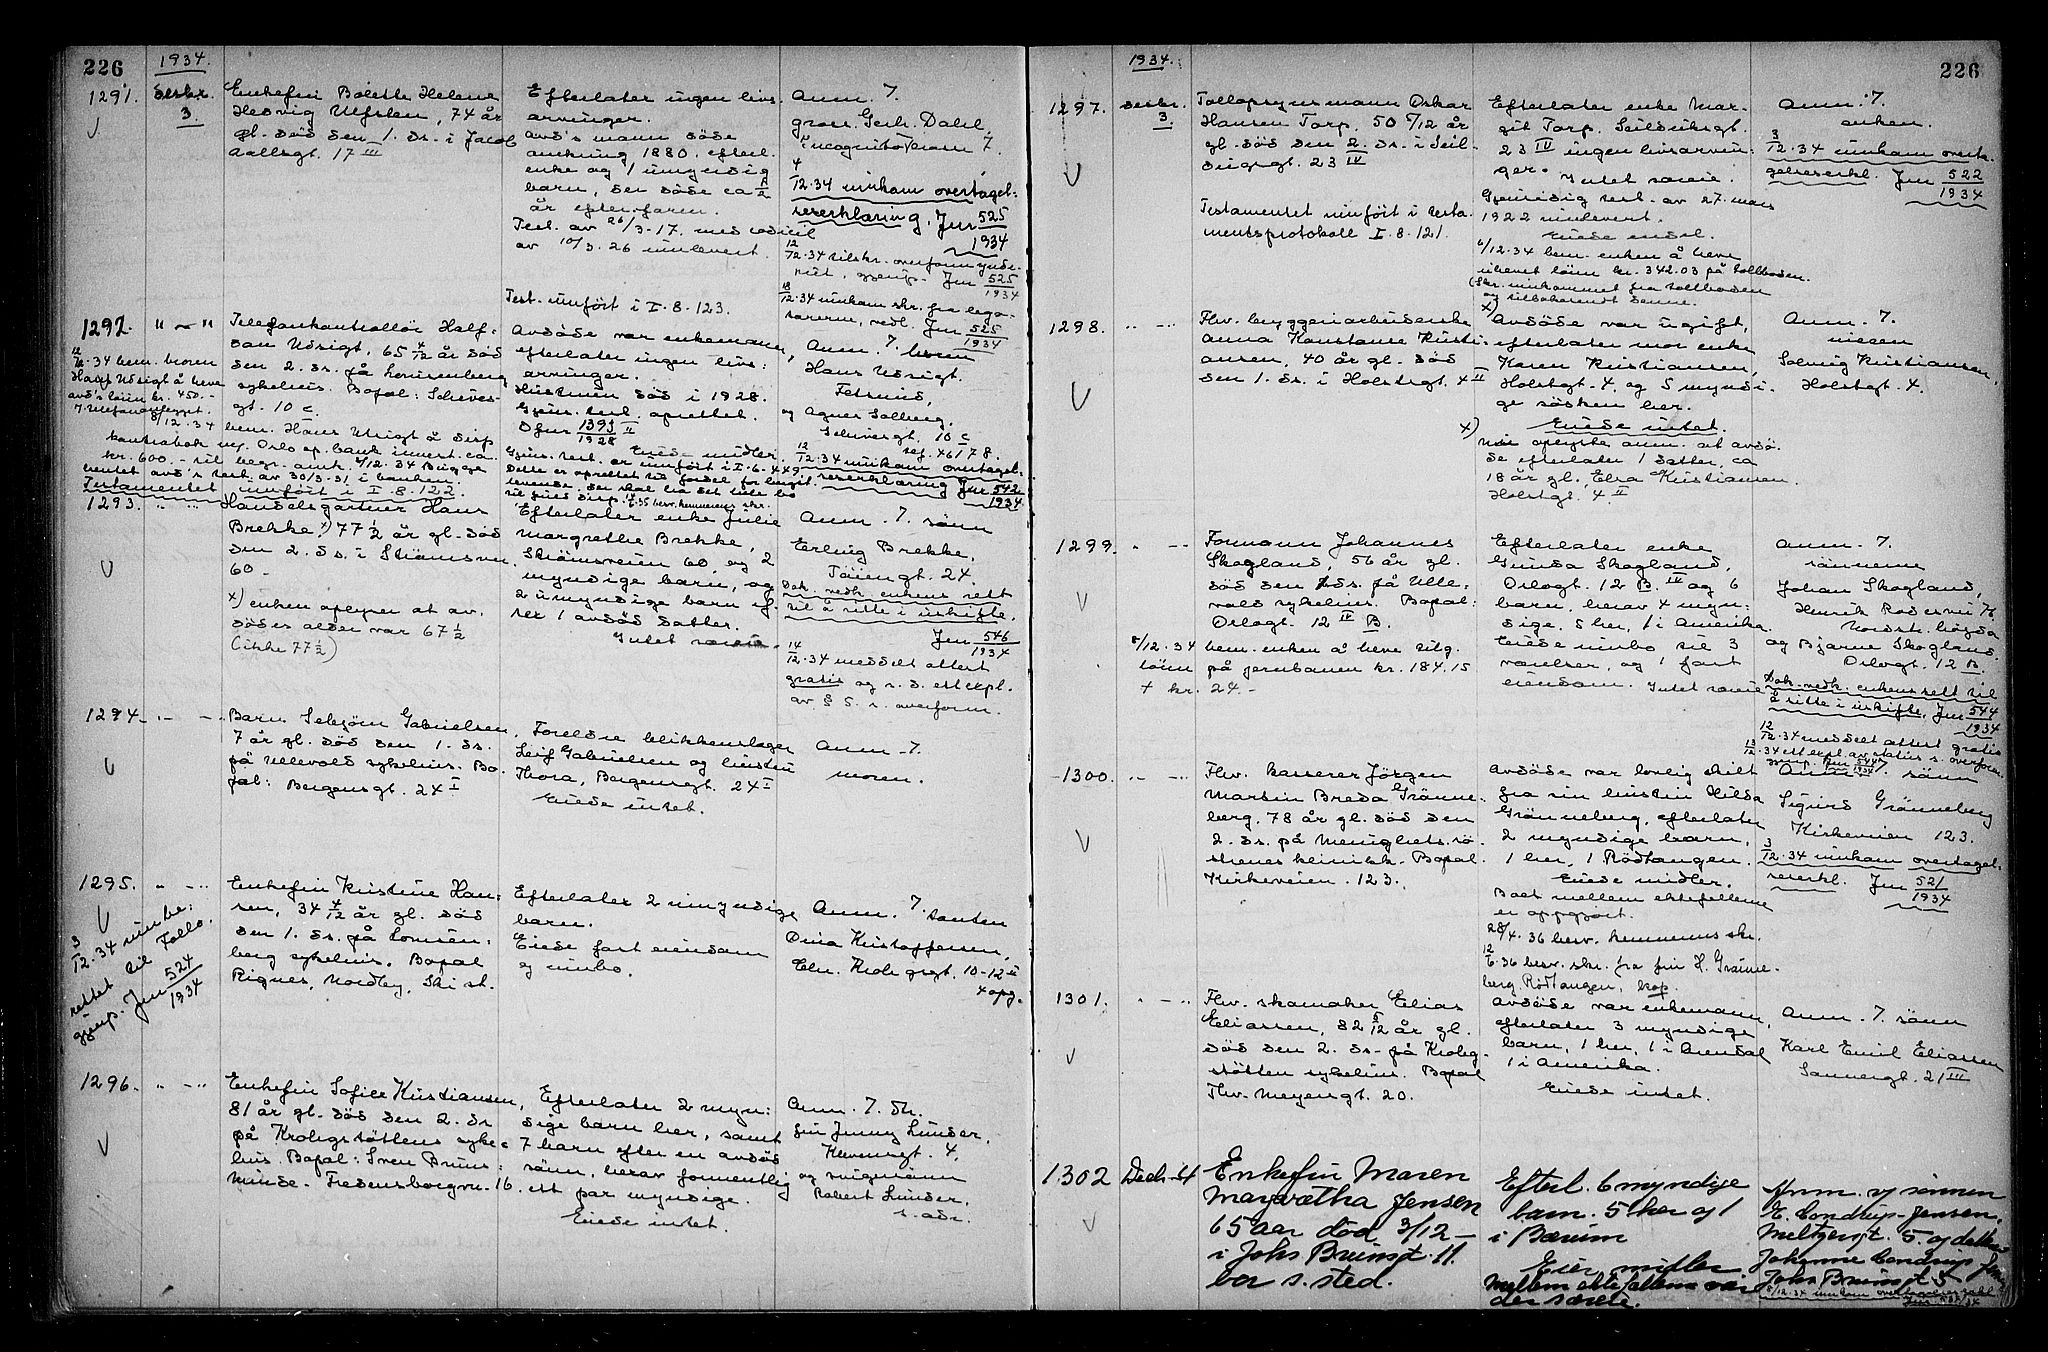 226
1934.
1291.
Desbr.
3.
Enkefru Bolette Helene
Hedvig Ulfsten, 74 år
gl. död den 1. ds. i Jacob
Aallsgt. 17 III
Efterlater ingen livs-
arvinger.
avd's mann döde
omkring 1880, efterl.
enke og 1 umyndig
barn, der döde ca 1/2
år efter faren.
Test. av 26/3-17. med codicil
av 10/3-26 innlevert.
Test. innfört i I. 8. 123.
Anm. 7.
gross. Gerh. Dahl,
Incognito terrasse 7.
4/12.34 innkom overtagel-
seserklæring. Jnr 525/1934
12/12.34 tilskr. overformynde-
riet, gjenp. Jnr 525/1934
18/12.34 innkom skr. fra lega-
tarerne, vedl. Jnr 525/1934
1292.
" — "
Telefonkontrollör Half-
dan Udsigt, 65 4/12 år död
den 2. ds. på Lovisenberg
sykehus. Bopel: Schives-
gt. 10 c.
12/12.34 bem. broren
Hans Udsigt å heve
avd's lönn kr. 450.-
i Telefonanlegget.
8/12.34 bem. Hans Udsigt å disp
kontrabok no. Oslo sp. bank innest. ca.
kr. 600.- til begr. omk. 6/12.34 Bugge
hentet avd's test. av 30/3-31 i banken.
Testamentet innfört i I. 8. 122.
Avdöde var enkemann,
efterlater ingen livs-
arvinger.
Hustruen död i 1928.
Gjens. test. oprettet.
Ofnr 1391/1928 II
Eiede midler.
Gjens. test. er innfört i I. 6. 449
Dette er oprettet til fordel for lengst-
levende, der skal ha det hele bo
til fri disp.
Anm. 7. broren
Hans Udsigt.
Fetsund,
og Agnes Solberg,
Schivesgt. 10 c
tlf. 46178.
12/12.34 innkom overtagel-
seserklæring Jnr 542/1934
1293.
" — "
Handelsgartner Hans
Brekke x) 77 1/2 år gl. död
den 2. ds. i Strömsvn.
60.
x) enken oplyser at av-
dödes alder var 67 1/2
(ikke 77 1/2)
Efterlater enke Julie
Margrethe Brekke,
Strömsveien 60, og 2
myndige barn, og
2 umyndige barn ef-
ter 1 avdöd datter.
Intet særeie.
Anm. 7. sönn
Erling Brekke,
Töiengt. 24.
Dok. vedk. enkens rett
til å sitte i uskifte,
Jnr 546/1934
14/12.34 meddelt attest
gratis og s. d. ett expl.
av § 5. s. overform.
1294.
" — "
Barn Torbjörn Gabrielsen,
7 år gl. död den 1. ds.
på Ullevold sykehus. Bo-
pel: Bergensgt. 24 I
Foreldre blikkenslager
Leif Gabrielsen og hustru
Thora, Bergensgt. 24 I
Eiede intet.
Anm. 7.
moren.
1295.
" — "
3/12.34 innbe-
rettet til Follo.
gjenp. Jnr 524/1934
Enkefru Kristine Han-
sen, 34 4/12 år gl. död
den 1. ds. på Lovisen-
berg sykehus. Bopel
Rignes, Nordby, Ski st.
Efterlater 2 umyndige
barn.
Eiede fast eiendom
og innbo.
Anm. 7. tanten
Dina Kristoffersen,
Chr. Krohgsgt. 10-12 II
4 opg.
1296.
" — "
Enkefru Sofie Kristiansen,
81 år gl. död den 2. ds
på Krohgstöttens syke-
hus. Bopel: Sven Bruns-
minde. Fredensborgvn. 16.
Efterlater 2 myn-
dige barn her, samt
7 barn efter en avdöd
sönn, herav formentlig
et par myndige.
Eiede intet.
Anm. 7. dtr.
fru Jenny Lunder,
Hövensgt. 4,
og svigersönn
Robert Lunder.
s. adr.
1934.
226
1297.
desbr.
3.
Tollopsynsmann Oskar
Hansen Torp. 50 5/12 år
gl. död den 2. ds. i Seil-
duksgt. 23 IV
Testamentet innfört i testa-
mentsprotokoll I. 8. 121.
Efterlater enke Mar-
git Torp. Seilduksgt.
23 IV ingen livsarvin-
ger.
Intet særeie.
Gjensidig test. av 27. mars
1922 innlevert.
Eiede endel.
6/12.34 bem. enken å heve
uhevet lönn kr. 342.03 på tollboden.
(Skr. innkommet fra tollboden
og tilbakesendt denne.
Anm. 7.
enken.
3/12.34 innkom overta-
gelseserkl. Jnr 522/1934
1298.
" — "
Fhv. bryggeriarbeiderske
Anna Konstanse Kristi-
ansen, 40 år gl. död
den 1. ds. i Holstsgt. 4 II
x)
Avdöde var ugift,
efterlater mor enke
Karen Kristiansen,
Holstgt. 4, og 5 myndi-
ge sösken her.
Eiede intet.
x) Nu oplyste anm. at avdö-
de efterlater 1 datter, ca
18 år gl. Elsa Kristiansen.
Holstgt. 4 II
Anm. 7.
niesen
Solveig Kristiansen,
Holstgt. 4.
1299.
" — "
Formann Johannes
Skogland, 56 år gl.
död den 1. ds. på Ulle-
vold sykehus. Bopel:
Oslogt. 12 IV B.
8/12.34 bem. enken å heve tilg.
lönn på jernbanen kr. 184.15
+ kr. 24.-
Efterlater enke
Gunda Skogland,
Oslogt. 12 B. IV og 6
barn, herav 4 myn-
dige. 5 her, 1 i Amerika.
Eiede innbo til 3
værelser, og 1 fast
eiendom. Intet særeie
Anm. 7.
sönnerne
Johan Skogland,
Nordstr. högda
og Bjarne Skogland.
Oslogt. 12 B.
Dok. vedk. enkens rett til
å sitte i uskifte, Jnr 544/1934
12/12.34 meddelt attest gratis
13/12.34 ett expl. av attest s. overform.
gjenp. Jnr 544/1934
1300.
" — "
Fhv. kasserer Jörgen
Martin Breda Grönne-
berg, 78 år gl. död den
2. ds. på Menighetssö-
strenes klinikk. Bopel
Kirkeveien 123.
Avdöde var lovlig skilt
fra sin hustru Hilda
Grönneberg, efterlater
2 myndige barn,
1 her, 1 Rödtangen.
Eiede midler.
Boet mellem ektefellerne
er opgjort.
28/4.36 besv. kemnerens skr.
12/6.36 besv. skr. fra fru H. Grönne-
berg Rödtangen, kop.
Anm. 7. sönn
Sigurd Grönneberg
Kirkeveien 123.
3/12.34 innkom overtagel-
seserkl. Jnr 521/1934
1301.
" — "
Fhv. skomaker Elias
Eliassen, 82 5/12 år gl.
död den 2. ds. på Krohg-
stötten sykehus. Bopel
Thv. Meyersgt. 20.
Avdöde var enkemann,
efterlater 3 myndige
barn, 1 her, 1 i Arendal
1 i Amerika.
Eiede intet.
Anm. 7. sönn
Karl Emil Eliassen
Sannergt. 21 III
1302
Decb. 4
Enkefru Maren
Margretha Jensen
65 aar död 3/12 —
i Johs Brunsgt. 11.
bor s. sted.
Efterl. 6 myndige
barn. 5 her og 1
i Bærum
Eier midler
Mellem ektefællerne var
der særeie.
Anm. af sönnen
E. Condrup-Jensen,
Meltzersgt. 5. og datter
Johanne Condrup Jensen
Johs Brunsgt
6/12.34 innkom overtagelseserkl